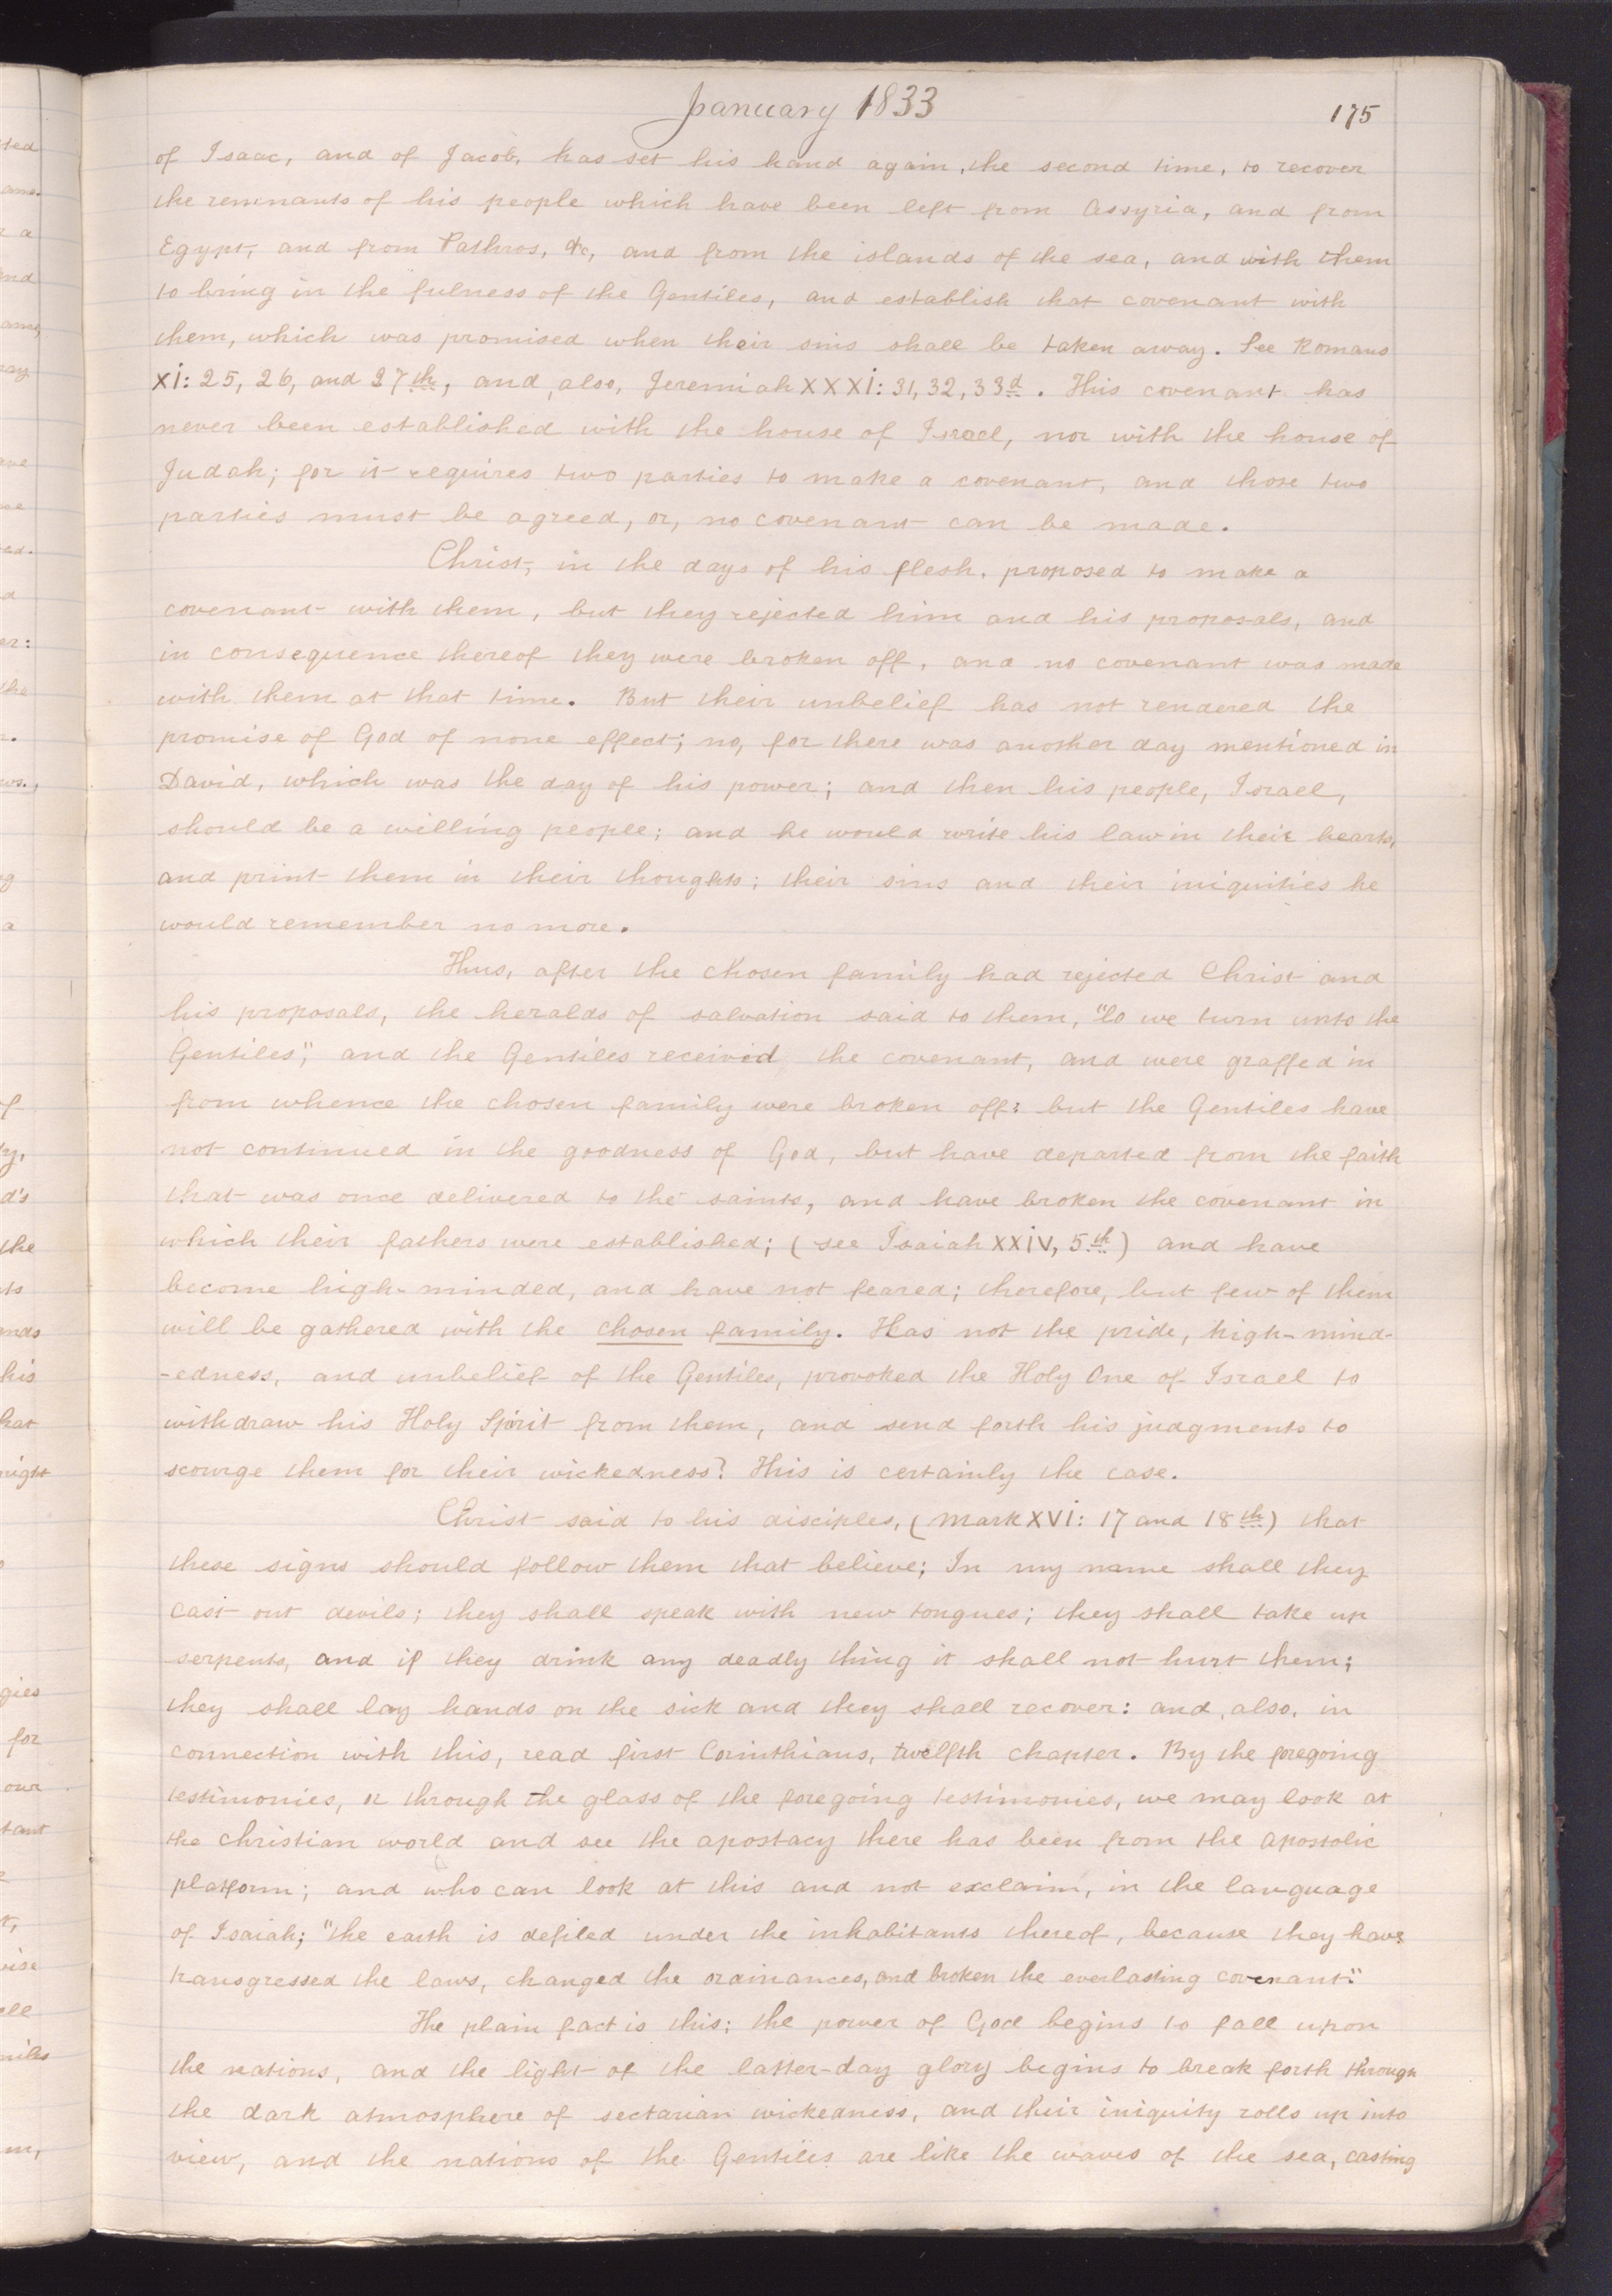 January 1833
175
of Isaac, and of Jacob, has set his hand again, the second time, to recover
the remnants of his people which have been left from Assyria, and from
Egypt, and from Pathros, &c, and from the islands of the sea, and with them
to bring in the fulness of the Gentiles, and establish that covenant with
them, which was promised when their sins shall be taken away. See Romans
XI: 25, 26, and 27th, and, also, Jeremiah XXXI: 31, 32, 33d. This covenant has
never been established with the house of Israel, nor with the house of
Judah; for it requires two parties to make a covenant, and those two
parties must be agreed, or, no covenant can be made.
Christ, in the days of his flesh, proposed to make a
covenant with them, but they rejected him and his proposals, and
in consequence thereof they were broken off, and no covenant was made
with them at that time. But their unbelief has not rendered the
promise of God of none effect; no, for there was another day mentioned in
David, which was the day of his power; and then his people, Israel,
should be a willing people; and he would write his law in their hearts,
and print them in their thoughts; their sins and their iniquities he
would remember no more.
Thus, after the chosen family had rejected Christ and
his proposals, the heralds of salvation said to them, "lo we turn unto the
Gentiles"; and the Gentiles received the covenant, and were graffed in
from whence the chosen family were broken off: but the Gentiles have
not continued in the goodness of God, but have departed from the faith
that was once delivered to the saints, and have broken the covenant in
which their fathers were established; (see Isaiah XXIV, 5th) and have
become high-minded, and have not feared; therefore, but few of them
will be gathered with the chosen family. Has not the pride, high-mind-
-edness, and unbelief of the Gentiles, provoked the Holy One of Israel to
withdraw his Holy Spirit from them, and send forth his judgments to
scourge them for their wickedness? This is certainly the case.
Christ said to his disciples, (Mark XVI: 17 and 18th) that
these signs should follow them that believe; In my name shall they
cast out devils; they shall speak with new tongues; they shall take up
serpents, and if they drink any deadly thing it shall not hurt them;
they shall lay hands on the sick and they shall recover: and, also, in
connection with this, read first Corinthians, twelfth chapter. By the foregoing
testimonies, or through the glass of the foregoing testimonies, we may look at
the christian world and see the apostacy there has been from the apostolic
platform; and who can look at this and not exclaim, in the language
of Isaiah; "the earth is defiled under the inhabitants thereof, because they have
transgressed the laws, changed the ordinances, and broken the everlasting covenant."
The plain fact is this; the power of God begins to fall upon
the nations, and the light of the latter-day glory begins to break forth through
the dark atmosphere of sectarian wickedness, and their iniquity rolls up into
view, and the nations of the Gentiles are like the waves of the sea, casting